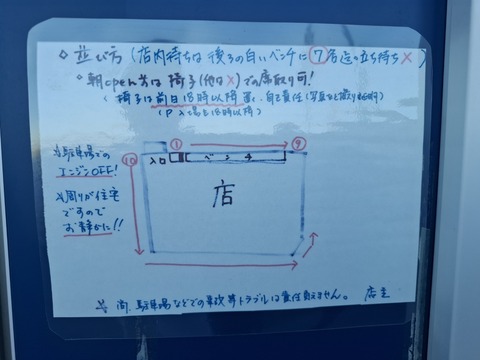 ◇ 並び方 (店内待ちは後ろの白いベンチに⑦名迄・立ち待ち×)
◇朝open前は椅子(他は×)での席取り可!
(椅子は前日18時以降置、自己責任(写真など撮り
(P入場も18時以降)
※駐車場での
エンジンOFF!
※周りが住宅
ですので
お静かに!!
① ⑨
⑩ 入口 ベンチ
店
※尚、駐車場などでの事故等トラブルは責任負えません。 店主